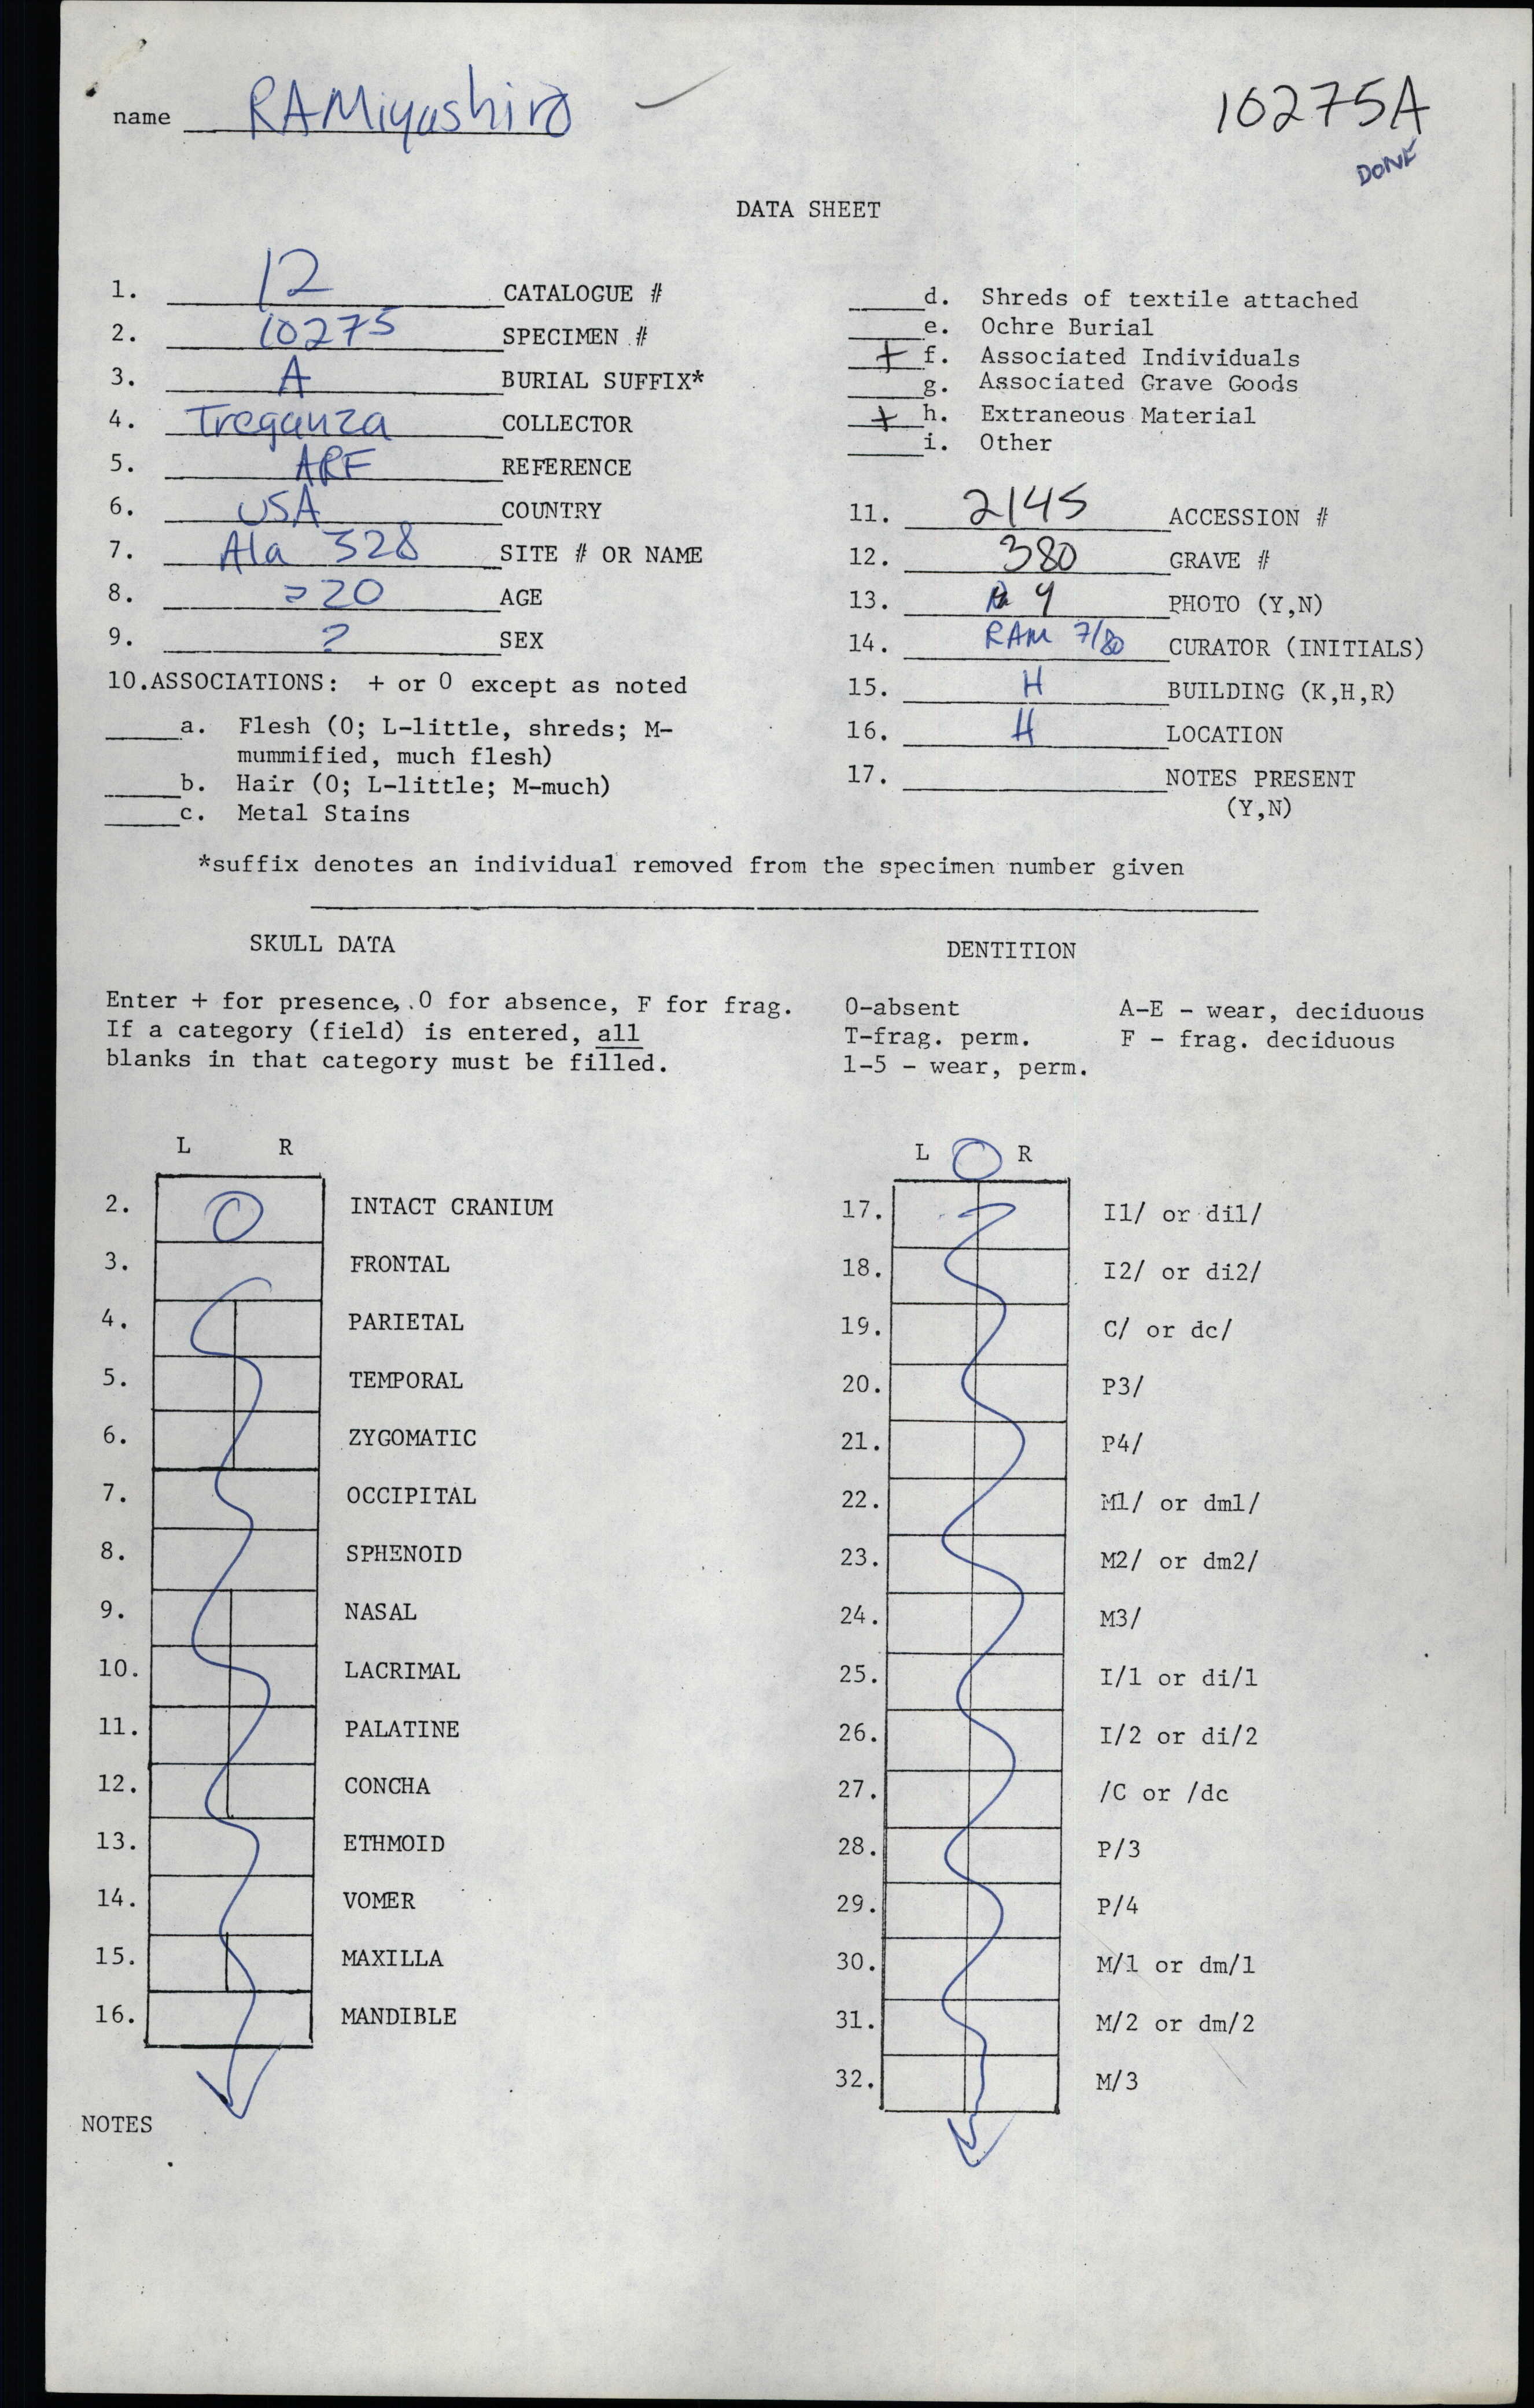 name RAMiyashiro
10275A
DONE
DATA SHEET
1. 12 CATALOGUE #
2. 10275 SPECIMEN #
3. A BURIAL SUFFIX*
4. Treganza COLLECTOR
5. ARF REFERENCE
6. USA COUNTRY
7. Ala 328 SITE # OR NAME
8. 20 AGE
9. ? SEX
10.ASSOCIATIONS: + or 0 except as noted
a. Flesh (0; L-little, shreds; M-
mummified, much flesh)
b. Hair (0; L-little; M-much)
c. Metal Stains
d. Shreds of textile attached
e. Ochre Burial
+ f. Associated Individuals
g. Associated Grave Goods
+ h. Extraneous Material
i. Other
11. 2145 ACCESSION #
12. 380 GRAVE #
13. Y PHOTO (Y,N)
14. RAM 7/80 CURATOR (INITIALS)
15. H BUILDING (K,H,R)
16. H LOCATION
17. NOTES PRESENT
(Y,N)
*suffix denotes an individual removed from the specimen number given
SKULL DATA
Enter + for presence, 0 for absence, F for frag.
If a category (field) is entered, all
blanks in that category must be filled.
L R
2. 0 INTACT CRANIUM
3. FRONTAL
4. PARIETAL
5. TEMPORAL
6. ZYGOMATIC
7. OCCIPITAL
8. SPHENOID
9. NASAL
10. LACRIMAL
11. PALATINE
12. CONCHA
13. ETHMOID
14. VOMER
15. MAXILLA
16. MANDIBLE
NOTES
DENTITION
0-absent A-E - wear, deciduous
T-frag. perm. F - frag. deciduous
1-5 - wear, perm.
L 0 R
17. I1/ or di1/
18. I2/ or di2/
19. C/ or dc/
20. P3/
21. P4/
22. M1/ or dm1/
23. M2/ or dm2/
24. M3/
25. I/1 or di/1
26. I/2 or di/2
27. /C or /dc
28. P/3
29. P/4
30. M/1 or dm/1
31. M/2 or dm/2
32. M/3